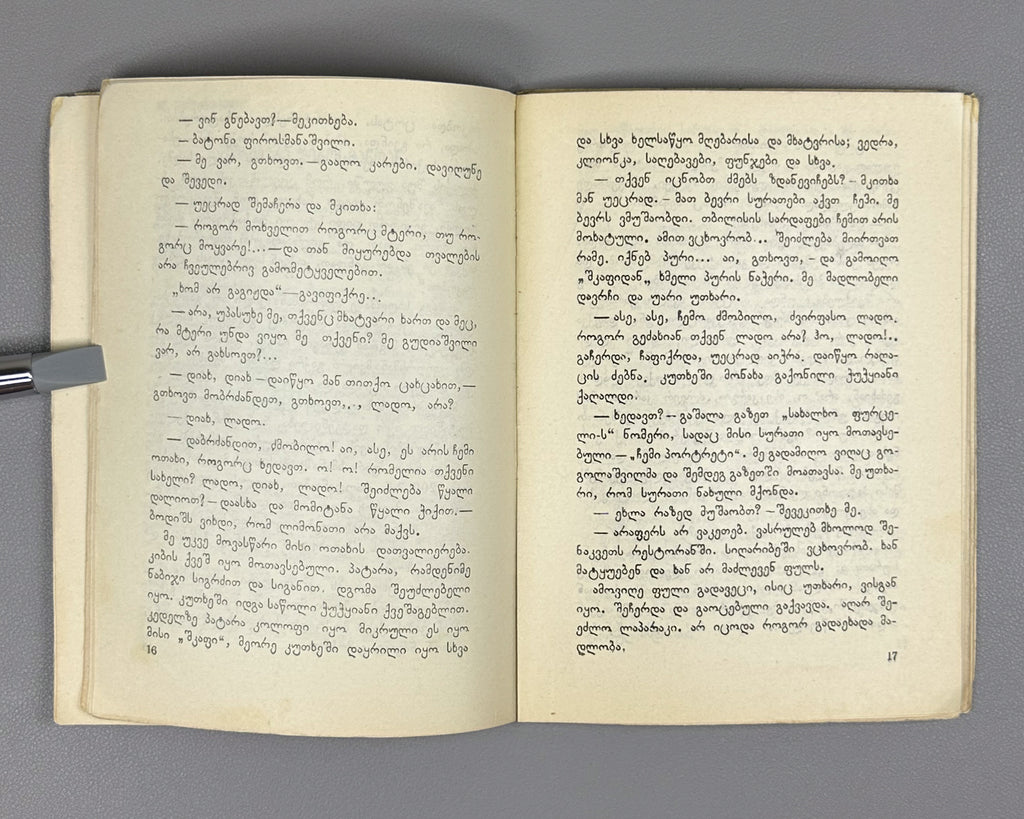 — ვინ გნებავთ?—მეკითხება.
— ბატონი ფიროსმანაშვილი.
— მე ვარ, გთხოვთ.—გააღო კარები. დავიღუნე
და შევედი.
— უეცრად შემაჩერა და მკითხა:
— როგორ მოხველით როგორც მტერი, თუ რო-
გორც მოყვარე!...—და თან მიყურებდა თვალების
არა ჩვეულებრივ გამომეტყველებით.
„ხომ არ გაგიჟდა“—გავიფიქრე...
— არა, უპასუხე მე, თქვენც მხატვარი ხართ და მეც,
რა მტერი უნდა ვიყო მე თქვენი? მე გუდიაშვილი
ვარ, არ გახსოვთ?...
— დიახ, დიახ—დაიწყო მან თითქო ცახცახით,—
გთხოვთ მობრძანდეთ, გთხოვთ,.., ლადო, არა?
— დიახ, ლადო.
— დაბრძანდით, ძმობილო! აი, ასე, ეს არის ჩემი
ოთახი, როგორც ხედავთ. ო! ო! რომელია თქვენი
სახელი? ლადო, დიახ, ლადო! შეიძლება წყალი
დალიოთ?—დაასხა და მომიტანა წყალი ჭიქით.—
ბოდიშს ვიხდი, რომ ლიმონათი არა მაქვს.
მე უკვე მოვასწარი მისი ოთახის დათვალიერება.
კიბის ქვეშ იყო მოთავსებული. პატარა, რამდენიმე
ნაბიჯი სიგრძით და სიგანით. დგომა შეუძლებელი
იყო. კუთხეში იდგა საწოლი ჭუჭყიანი ქვეშაგებლით.
კედელზე პატარა კოლოფი იყო მიკრული ეს იყო
მისი „შკაფი“, მეორე კუთხეში დაყრილი იყო სხვა
16
და სხვა ხელსაწყო მღებარისა და მხატვრისა; ვედრა,
კლიონკა, საღებავები, ფუნჯები და სხვა.
— თქვენ იცნობთ ძმებს ზდანევიჩებს?—მკითხა
მან უეცრად.—მათ ბევრი სურათები აქვთ ჩემი. მე
ბევრს ვმუშაობდი. თბილისის სარდაფები ჩემით არის
მოხატული. ამით ვცხოვრობ... შეიძლება მიირთვათ
რამე. იქნებ პური... აი, გთხოვთ,—და გამოიღო
„შკაფიდან„ ხმელი პურის ნაჭერი. მე მადლობელი
დავრჩი და უარი უთხარი.
— ასე, ასე, ჩემო ძმობილო, ძვირფასო ლადო.
როგორ გეძახიან თქვენ ლადო არა? ჰო, ლადო!..
გაჩერდი, ჩაფიქრდა, უეცრად აიჭრა. დაიწყო რაღა-
ცის ძებნა. კუთხეში მონახა გაქონილი ჭუჭყიანი
ქაღალდი.
— ხედავთ?—გაშალა გაზეთ „სახალხო ფურცე-
ლი-ს“ ნომერი, სადაც მისი სურათი იყო მოთავსე-
ბული—„ჩემი პორტრეტი“. მე გადამიღო ვიღაც გო-
გოლაშვილმა და შემდეგ გაზეთში მოათავსა. მე უთხა-
რი, რომ სურათი ნახული მქონდა.
— ეხლა რაზედ მუშაობთ?—შევეკითხე მე.
— არაფერს არ ვაკეთებ. ვასრულებ მხოლოდ შე-
ნაკვეთს რესტორანში. სიღარიბეში ვცხოვრობ. ხან
მატყუებენ და ხან არ მაძლევენ ფულს.
ამოვიღე ფული გადავეცი, ისიც უთხარი, ვისგან
იყო. შეჩერდა და გაოცებული გაქვავდა. აღარ შე-
ეძლო ლაპარაკი. არ იცოდა როგორ გადაეხადა მა-
დლობა.
17